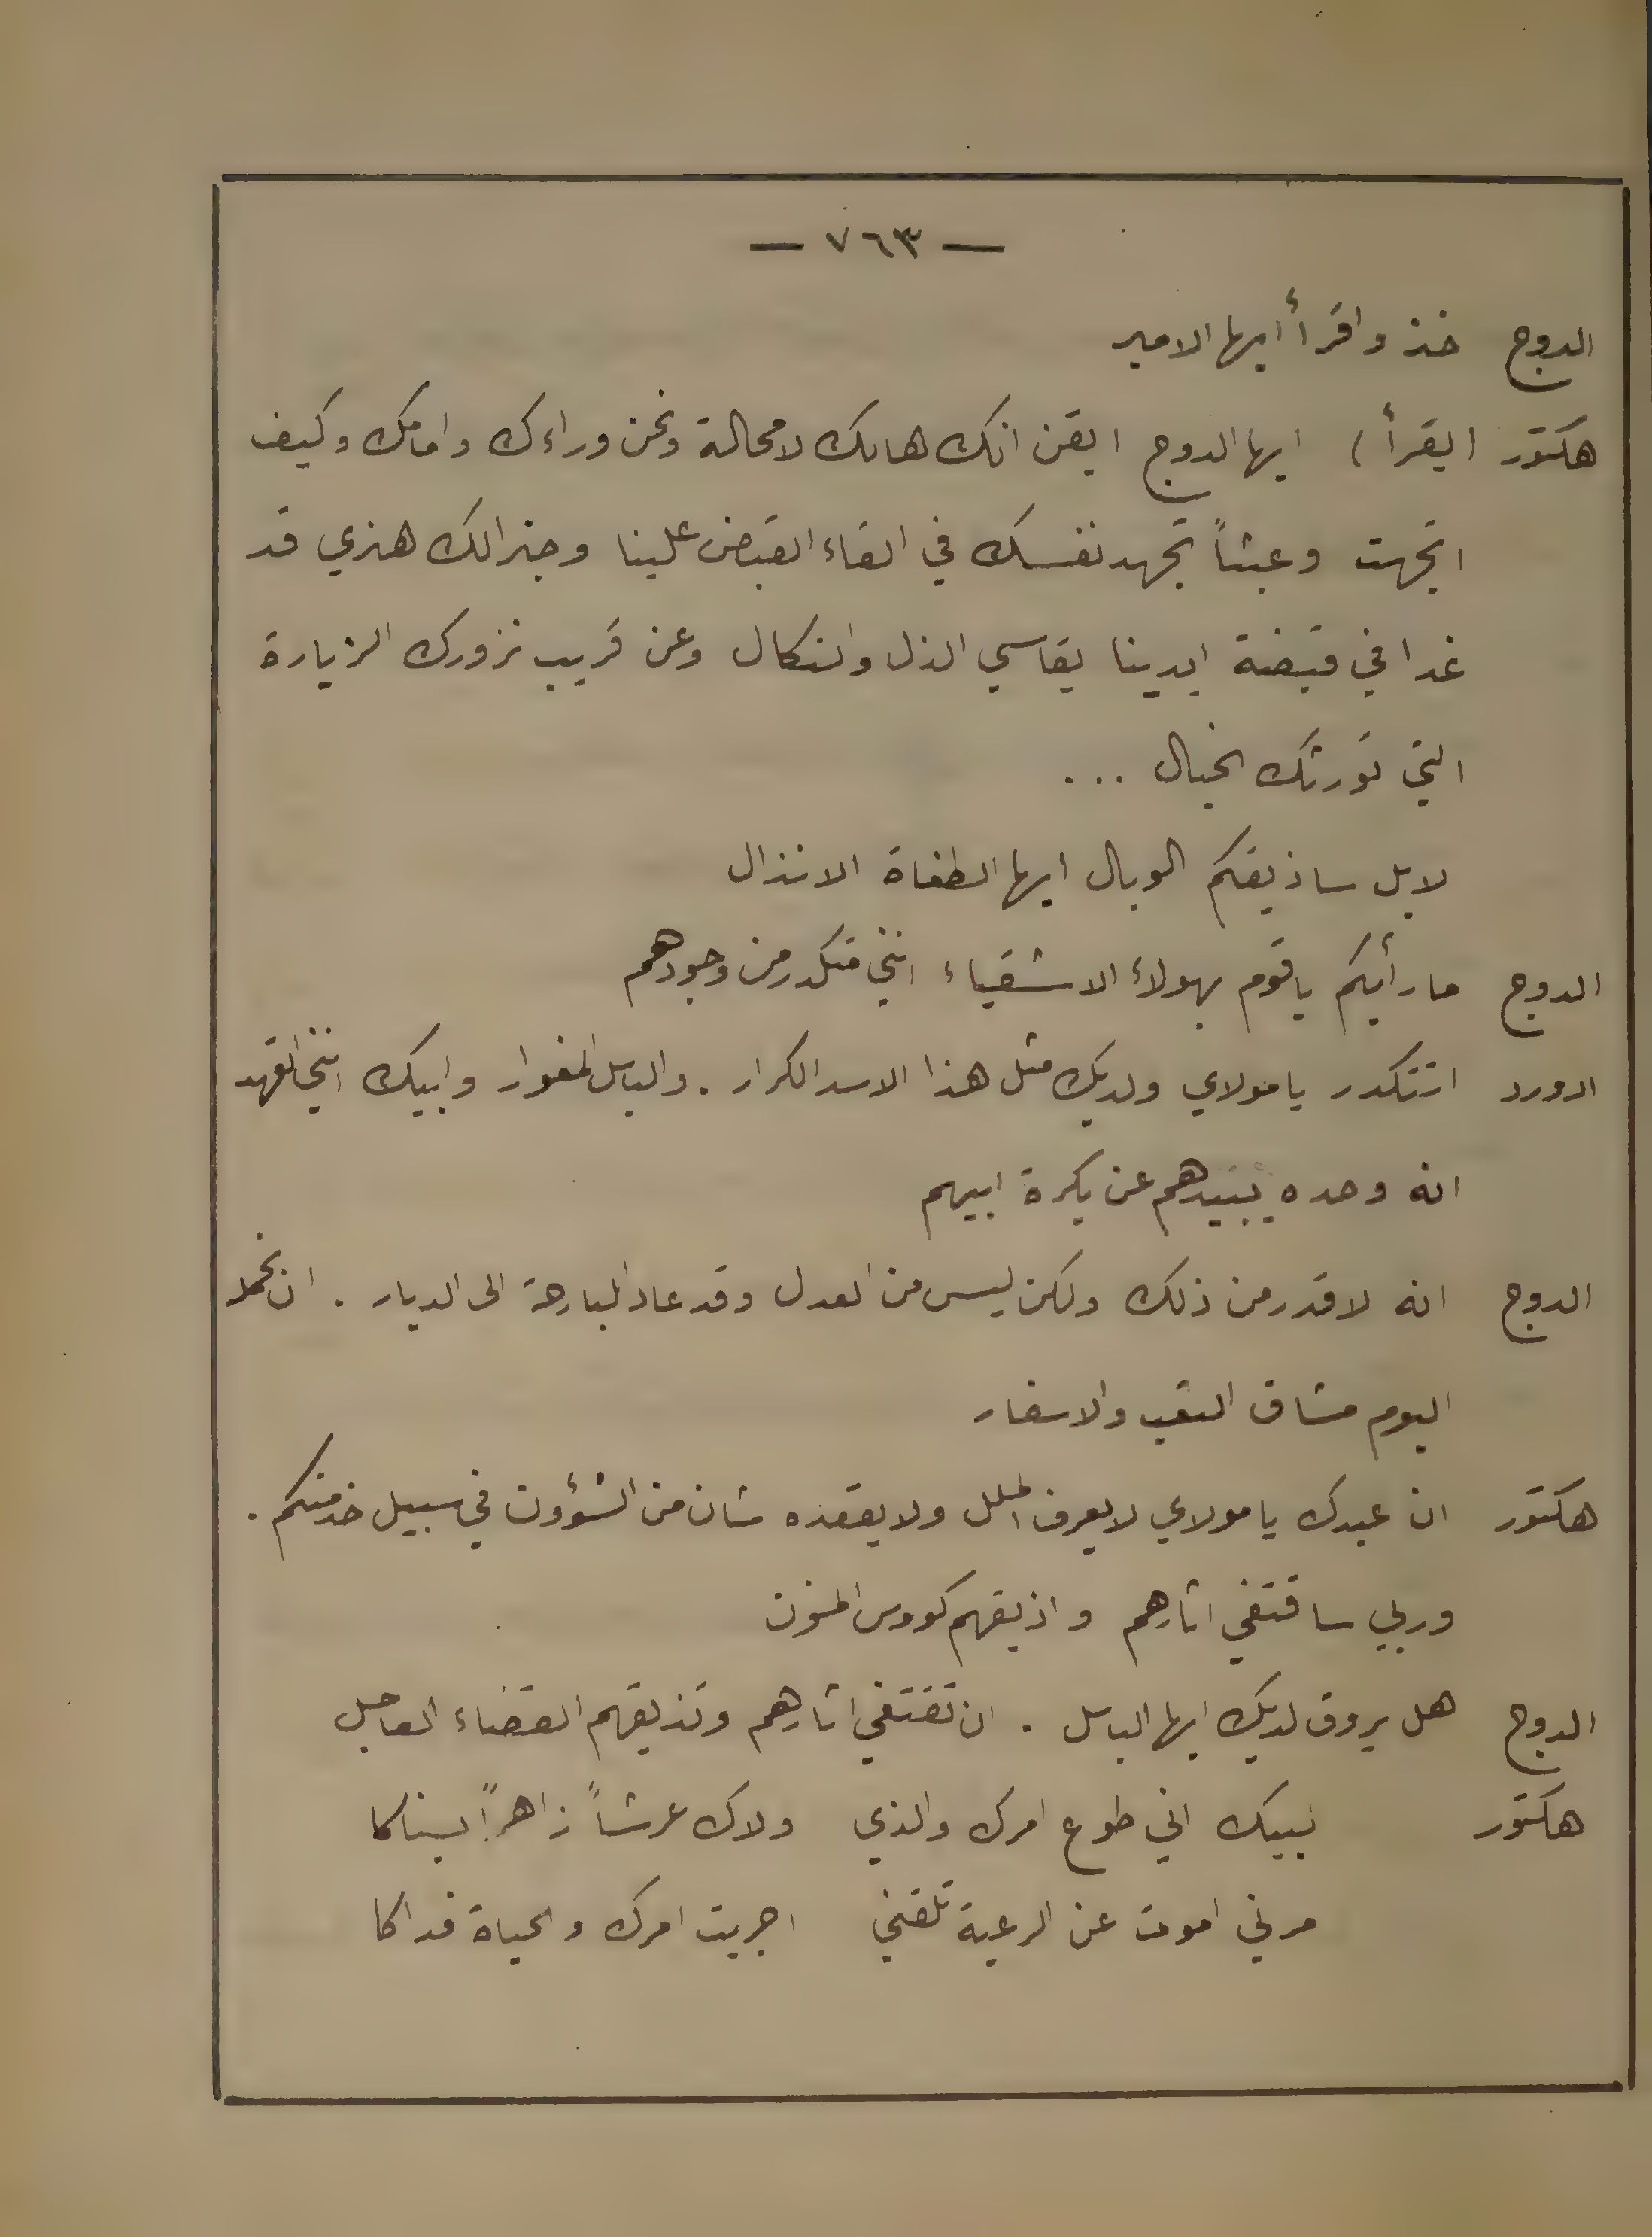 — ٧٦٣ —
الدوج خذ واقرأ ايها الامير
هكتور (يقرأ) ايها الدوج ايقن انك هالك لا محالة ونحن وراءك وامامك وكيف
اتجهت وعبثاً تجهد نفسك في القاء القبض علينا وجنرالك هنري قد
غدا في قبضة ايدينا يقاسي الذل والنكال وعن قريب نزورك الزيارة
التي تورثك الخبال ...
لا بل ساذيقكم الوبال ايها الطغاة الانذال
الدوج ما رأيكم يا قوم بهولاء الاشقياء انني متكدر من وجودهم
ادورد اتتكدر يا مولاي ولديك مثل هذا الاسد الكرار . والباسل المغوار وابيك انني اتعهد
انه وحده يبيدهم عن بكرة ابيهم
الدوج انه لاقدر من ذلك ولكن ليس من العدل وقد عاد البارحة الى الديار . ان نحمله
اليوم مشاق التعب والاسفار
هكتور ان عبدك يا مولاي لا يعرف الملل ولا يقعده شان من الشؤون في سبيل خدمتكم .
وربي ساقتفي اثارهم واذيقهم كووس المنون
الدوج هل يروق لديك ايها الباسل . ان تقتفي اثارهم وتذيقهم القضاء العاجل
هكتور لبيك اني طوع امرك والذي ولاك عرشاً زاهراً بسناكا
مرني اموت عن الرعية تلقني اجريت امرك والحياة فداكا